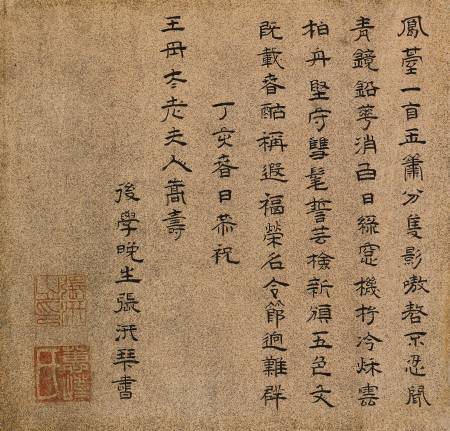 鳳臺一玉簫分隻影嗷嗸不忍聞
青鏡鉛華消白日綠窓機杼冷秌雲
柏舟堅守雙髦誓芸檢新頒五色文
既載春酤稱遐福榮名令節迥難群
丁亥春日恭祝
王母太老夫人嵩壽
後學晚生張書